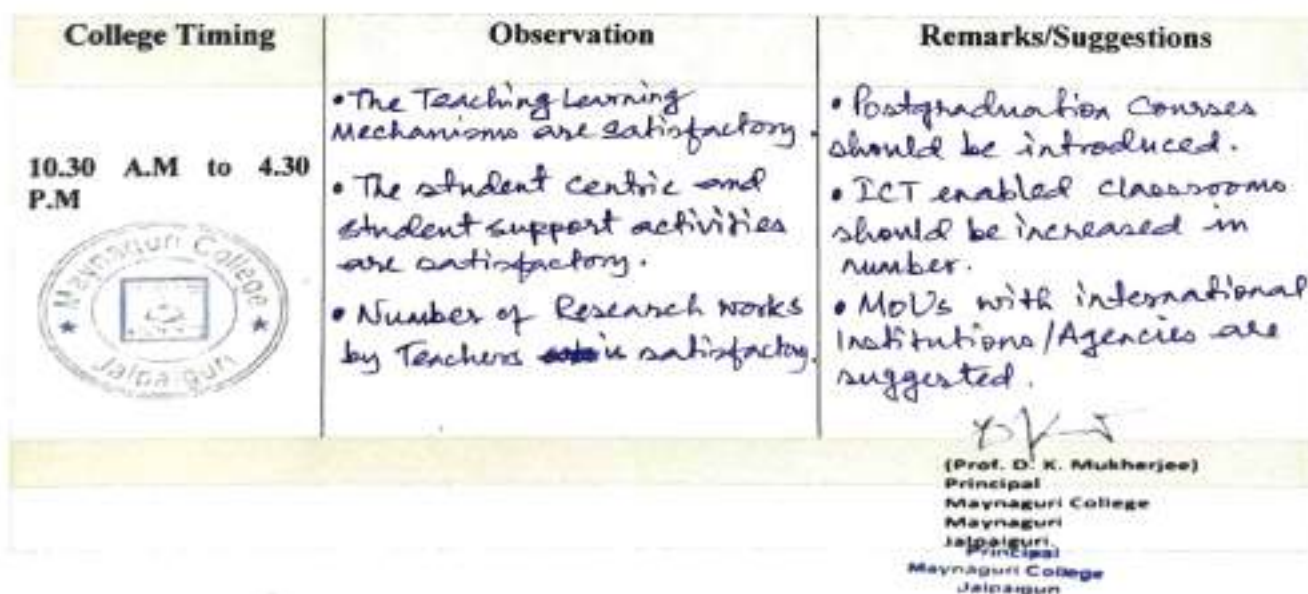 College Timing
Observation
Remarks/Suggestions
10.30 A.M to 4.30
P.M
Maynaguri College
Jalpaiguri
• The Teaching Learning
Mechanisms are satisfactory.
• The student centric and
student support activities
are satisfactory.
• Number of Research works
by Teachers is satisfactory.
• Postgraduation Courses
should be introduced.
• ICT enabled classrooms
should be increased in
number.
• MoUs with international
Institutions/Agencies are
suggested.
(Prof. D. K. Mukherjee)
Principal
Maynaguri College
Maynaguri
Jalpaiguri.
Principal
Maynaguri College
Jalpaiguri